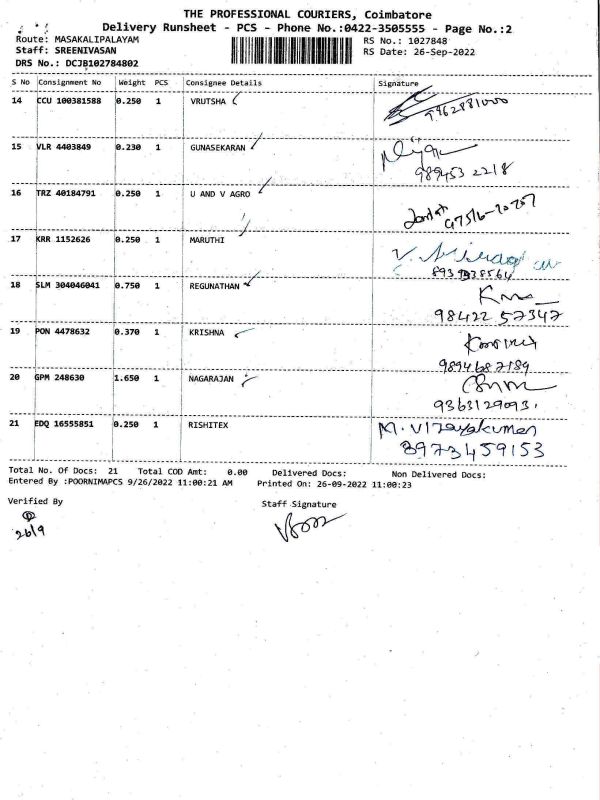 THE PROFESSIONAL COURIERS, Coimbatore
Delivery Runsheet - PCS - Phone No.:0422-3505555 - Page No.:2
Route: MASAKALIPALAYAM RS No.: 1027848
Staff: SREENIVASAN RS Date: 26-Sep-2022
DRS No.: DCJB102784802
S No Consignment No Weight PCS Consignee Details Signature
14 CCU 100381588 0.250 1 VRUTSHA
15 VLR 4403849 0.230 1 GUNASEKARAN
989453 2218
16 TRZ 40184791 0.250 1 U AND V AGRO
17 KRR 1152626 0.250 1 MARUTHI
18 SLM 304046041 0.750 1 REGUNATHAN
98422 57347
19 PON 4478632 0.370 1 KRISHNA
9894687189
20 GPM 248630 1.650 1 NAGARAJAN
9363129093.
21 EDQ 16555851 0.250 1 RISHITEX M. Vijayakumar
8973459153
Total No. Of Docs: 21 Total COD Amt: 0.00 Delivered Docs: Non Delivered Docs:
Entered By :POORNIMAPCS 9/26/2022 11:00:21 AM Printed On: 26-09-2022 11:00:23
Verified By Staff Signature
26/9